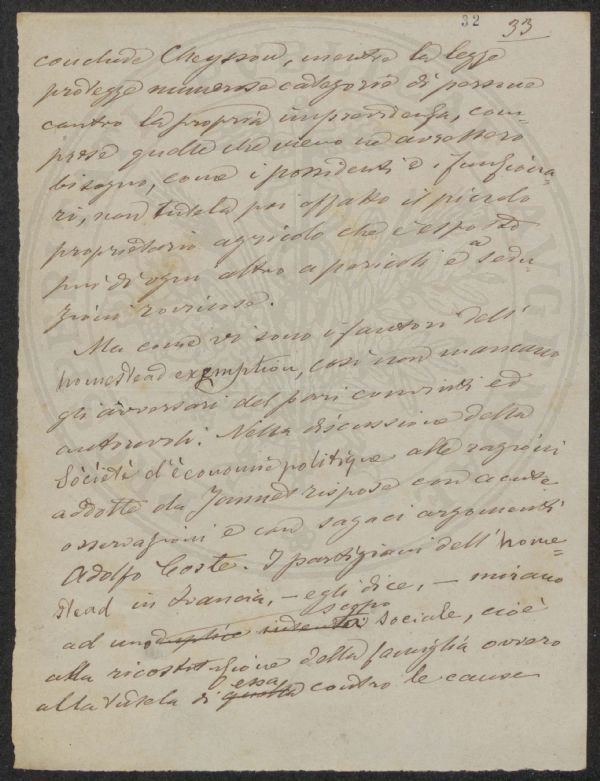 32 33
conclude Cheysson, mentre la legge
protegge numerose categorie di persone
contro la propria imprevidenza, com-
prese quelle che meno ne avrebbero
bisogno, come i possidenti e i funziona-
ri, non tutela poi affatto il piccolo
proprietario agricolo che è esposto
più di ogni altro a pericoli e a sedu-
zioni rovinose.
Ma come vi sono i fautori dell'
homestead exemption, così non mancano
gli avversari del pari convinti ed
autorevoli. Nella discussione della
Société d'économie politique alle ragioni
addotte da Jannet rispose con acute
osservazioni e con sagaci argomenti
Adolfo Coste. I partigiani dell'home-
stead in Francia, - egli dice, - mirano
scopo
ad uno duplice intento sociale, cioè
alla ricostituzione della famiglia ovvero
essa
alla tutela di questa contro le cause